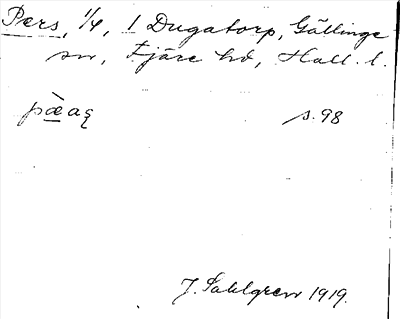 Pers, 1/4, 1 Dugatorp, Gällinge
sn, Fjäre hd, Hall. l.
pæ̀aȩ s. 98
J. Sahlgren 1919.